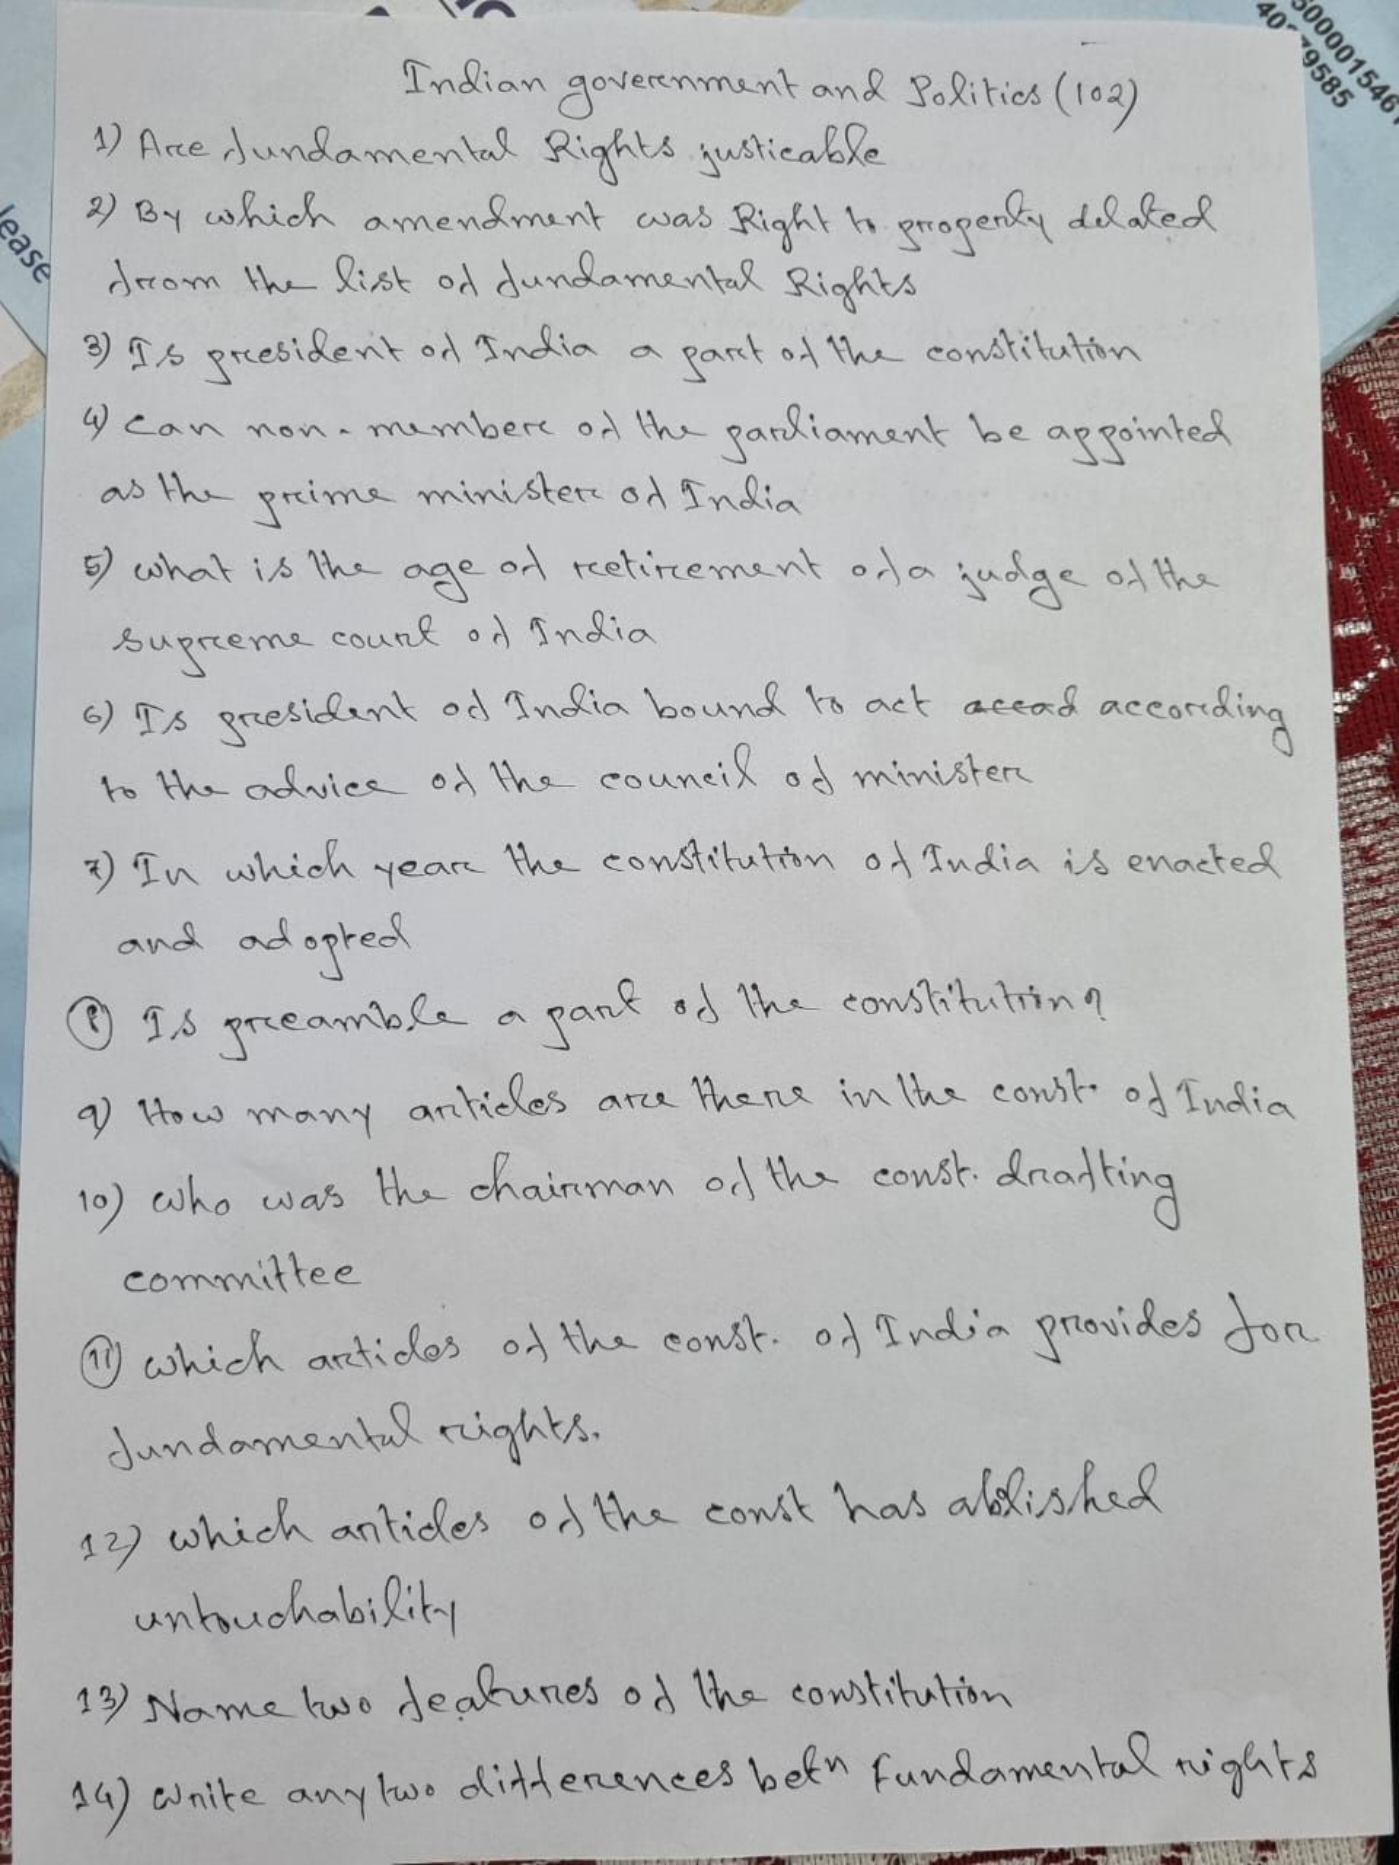 Indian government and Politics (102)
1) Are fundamental Rights justicable
2) By which amendment was Right to property delated
from the list of fundamental Rights
3) Is president of India a part of the constitution
4) Can non-member of the parliament be appointed
as the prime minister of India
5) what is the age of retirement of a judge of the
supreme court of India
6) Is president of India bound to act according
to the advice of the council of minister
7) In which year the constitution of India is enacted
and adopted
8) Is preamble a part of the constitution?
9) How many articles are there in the const. of India
10) who was the chairman of the const. drafting
committee
11) which articles of the const. of India provides for
fundamental rights.
12) which articles of the const has ablished
untouchability
13) Name two features of the constitution
14) write any two differences betn fundamental rights
lease